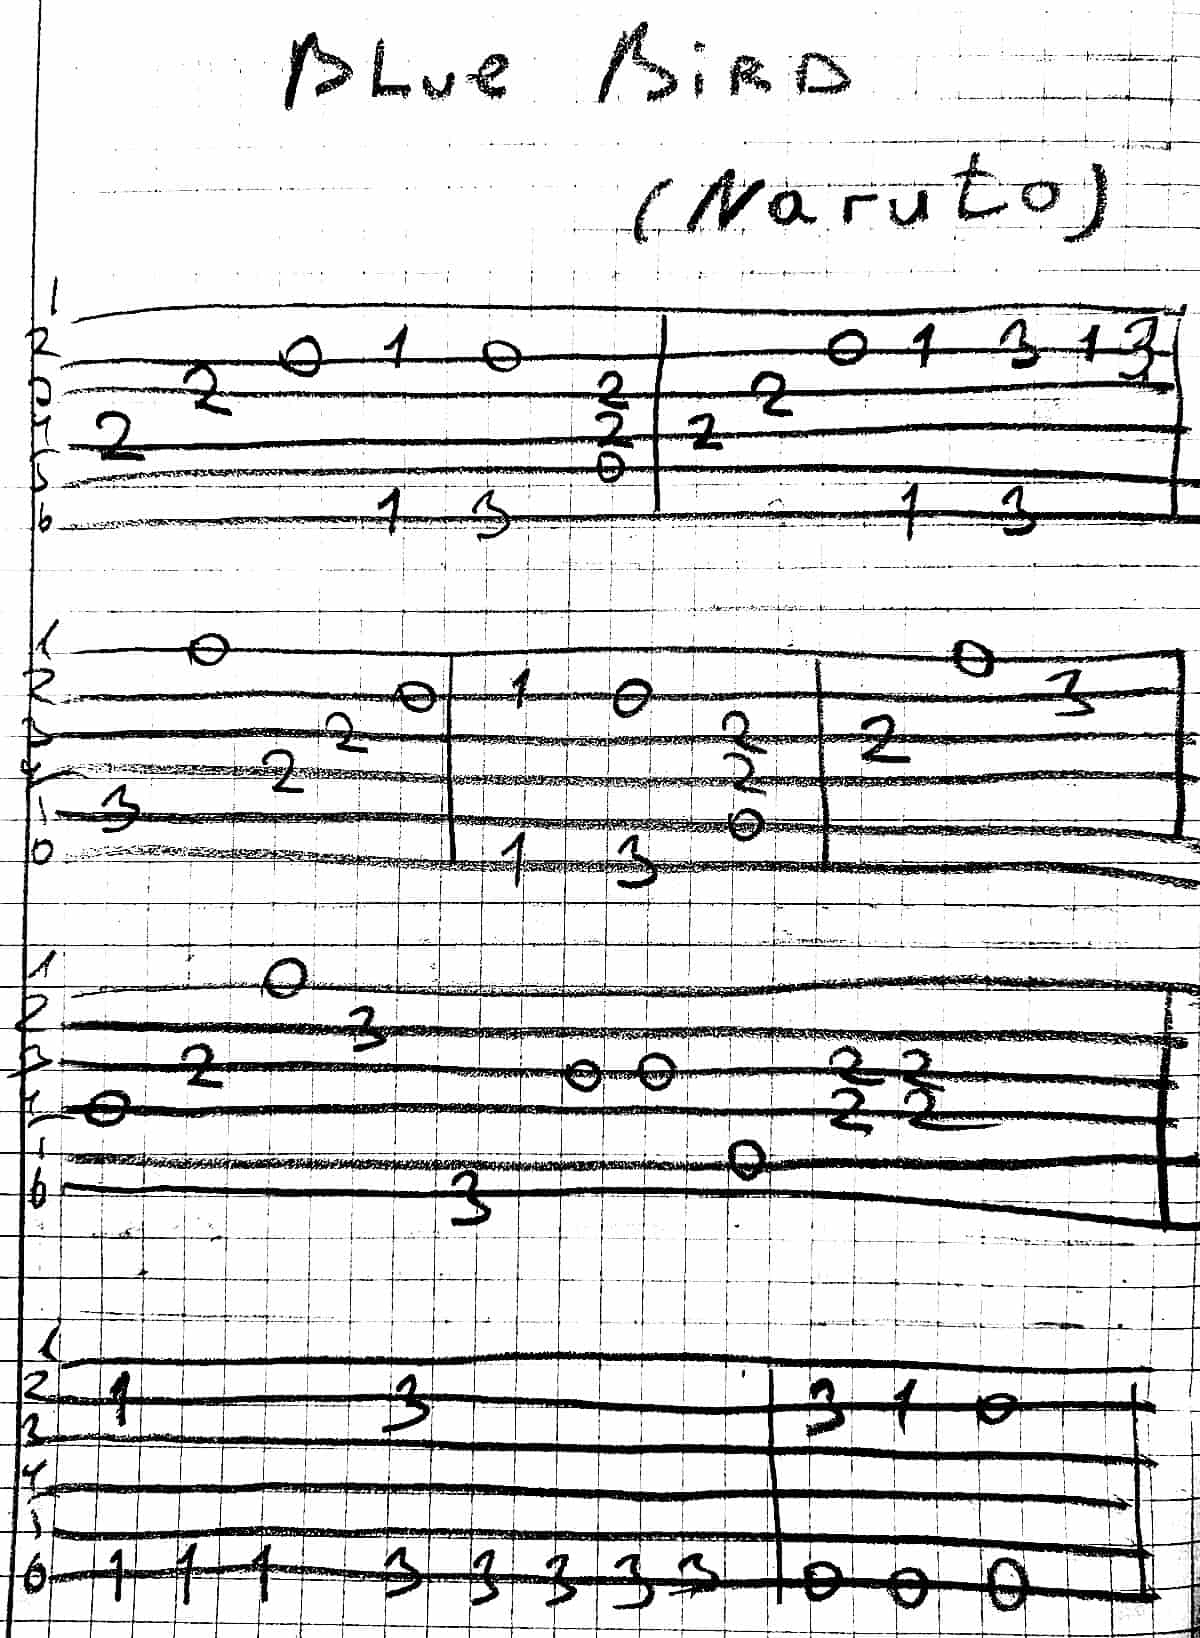 BLue BiRD
(Naruto)
1
2 0 1 0 0 1 3 1 3
3 2 2 2
4 2 2 2
5 0
6 1 3 1 3
1 0 0
2 0 1 0 3
3 2 2 2
4 2 2
5 3 0
6 1 3
1 0
2 3
3 2 0 0 2 2
4 0 2 2
5 0
6 3
1
2 1 3 3 1 0
3
4
5
6 1 1 1 3 3 3 3 3 0 0 0